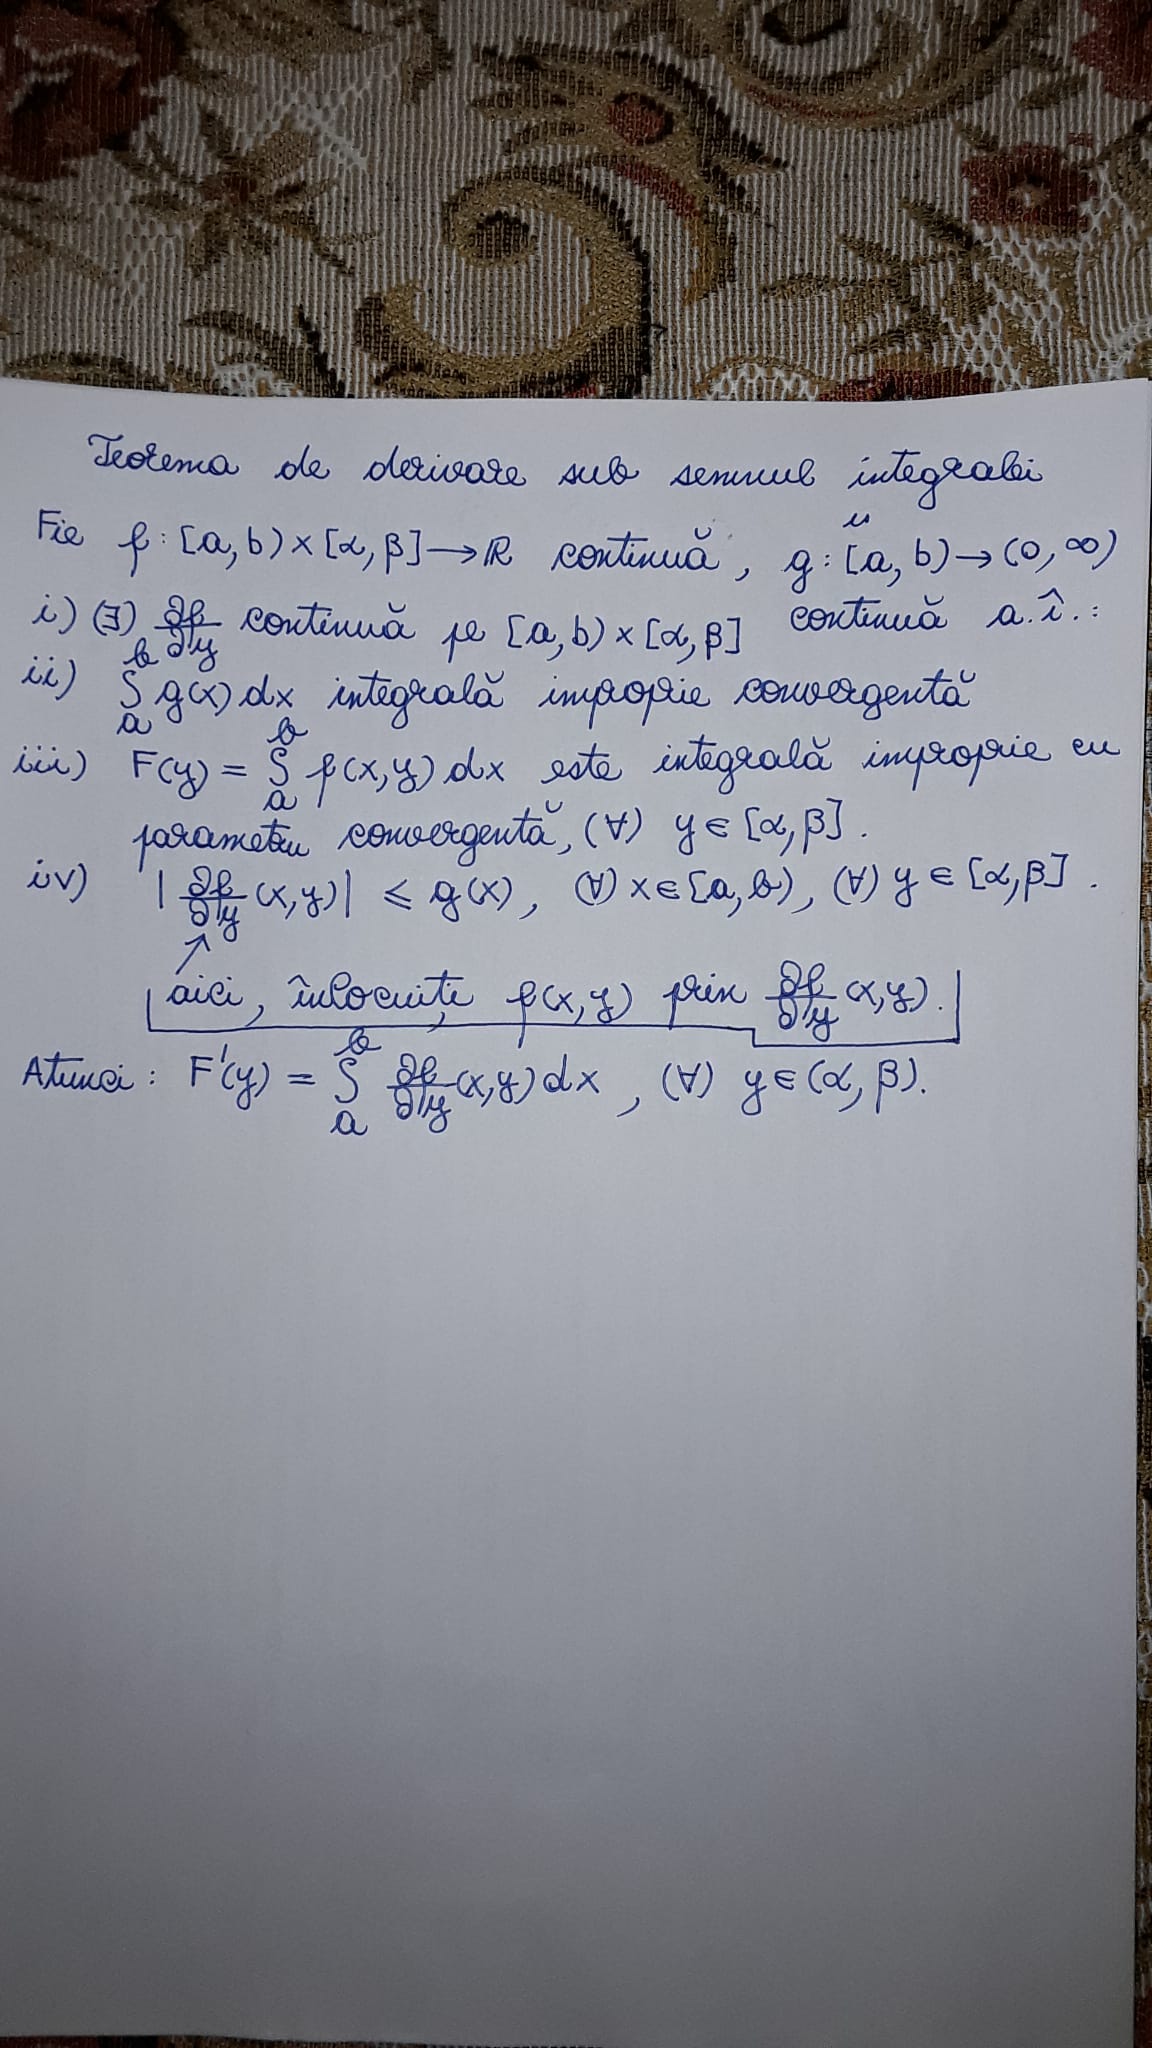 Teorema de derivare sub semnul integralei
Fie f : [a, b) × [α, β] → ℝ continuă, g : [a, b) → (0, ∞)
i) (∃) ∂f/∂y continuă pe [a, b) × [α, β] continuă a.î.:
ii) ∫_a^b g(x) dx integrală improprie convergentă
iii) F(y) = ∫_a^b f(x, y) dx este integrală improprie cu
parametru convergentă, (∀) y ∈ [α, β].
iv) |∂f/∂y (x, y)| ≤ g(x), (∀) x ∈ [a, b), (∀) y ∈ [α, β].
↗
aici, înlocuiți f(x, y) prin ∂f/∂y (x, y).
Atunci : F'(y) = ∫_a^b ∂f/∂y (x, y) dx, (∀) y ∈ (α, β).